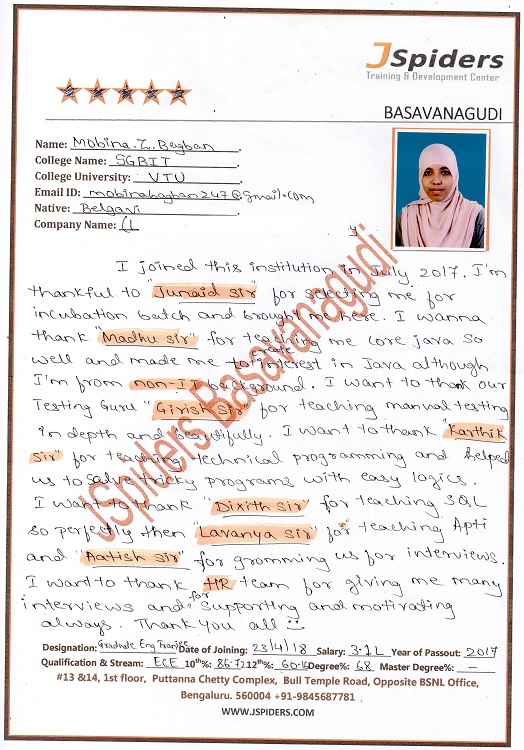 JSpiders
Training & Development Center
BASAVANAGUDI
Name: Mobina. Z. Begban
College Name: SGBIT
College University: VTU
Email ID: mobinabagban247@gmail.com
Native: Belgavi
Company Name: (L
y
I joined this institution in July 2017. I'm
thankful to "Junaid sir" for selecting me for
incubation batch and brought me here. I wanna
thank "Madhu sir" for teaching me core java so
well and made me to create interest in Java although
I'm from non-IT background. I want to thank our
Testing Guru "Girish Sir" for teaching manual testing
in depth and beautifully. I want to thank "Karthik
sir" for teaching technical programming and helped
us to solve tricky programs with easy logics.
I want to thank "Dixith sir" for teaching SQL
so perfectly then "Lavanya sir" for teaching Apti
and "Aatish sir" for gromming us for interviews.
I want to thank HR team for giving me many
interviews and for supporting and motivating
always. Thank you all
JSpiders Basavanagudi
Designation: Graduate Eng Trainee Date of Joining: 23/4/18 Salary: 3.1L Year of Passout: 2017
Qualification & Stream: ECE 10th%: 86.72 12th%: 60.16 Degree%: 68 Master Degree%: —
#13 &14, 1st floor, Puttanna Chetty Complex, Bull Temple Road, Opposite BSNL Office,
Bengaluru. 560004 +91-9845687781
WWW.JSPIDERS.COM